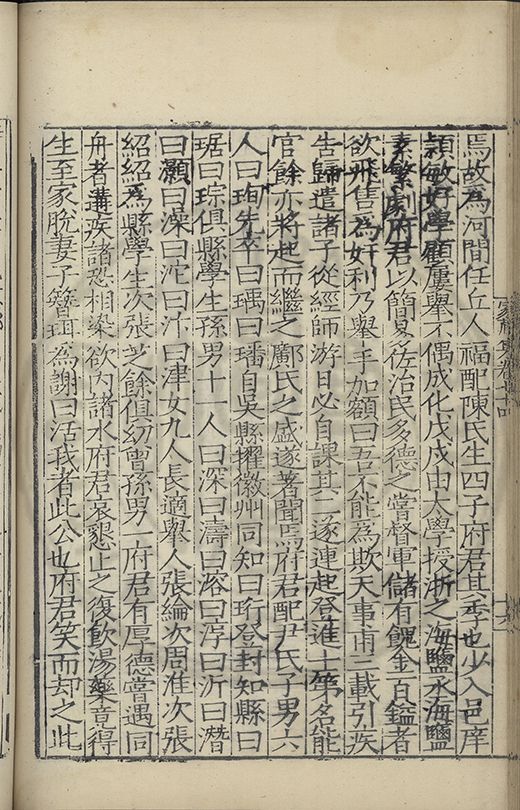 焉故爲河間任丘人福配陳氏生四子府君其季也少入邑庠
穎敏好學顧屢舉不偶成化戊戌由太學授浙之海鹽丞海鹽
素繁劇府君以簡易佐治民多德之嘗督軍儲有餽金百鎰者
欲飛售爲奸利乃舉手加額曰吾不能爲欺天事甫三載引疾
告歸遣諸子從經師游日必自課其二遂連起登進士第名能
官餘亦將起而繼之鄺氏之盛遂著聞焉府君配尹氏子男六
人曰珣先卒曰瑀曰璠自吳縣擢徽州同知曰珩登封知縣曰
琚曰琮俱縣學生孫男十一人曰深曰濤曰溶曰浮曰沂曰潛
曰灝曰澡曰沱曰汴曰津女九人長適舉人張綸次周淮次張
紹紹爲縣學生次張芝餘俱幼曾孫男一府君有厚德嘗遇同
舟者遘疾諸恐相染欲內諸水府君哀懇止之復飲湯藥竟得
生至家脫妻子簪珥爲謝曰活我者此公也府君笑而却之此